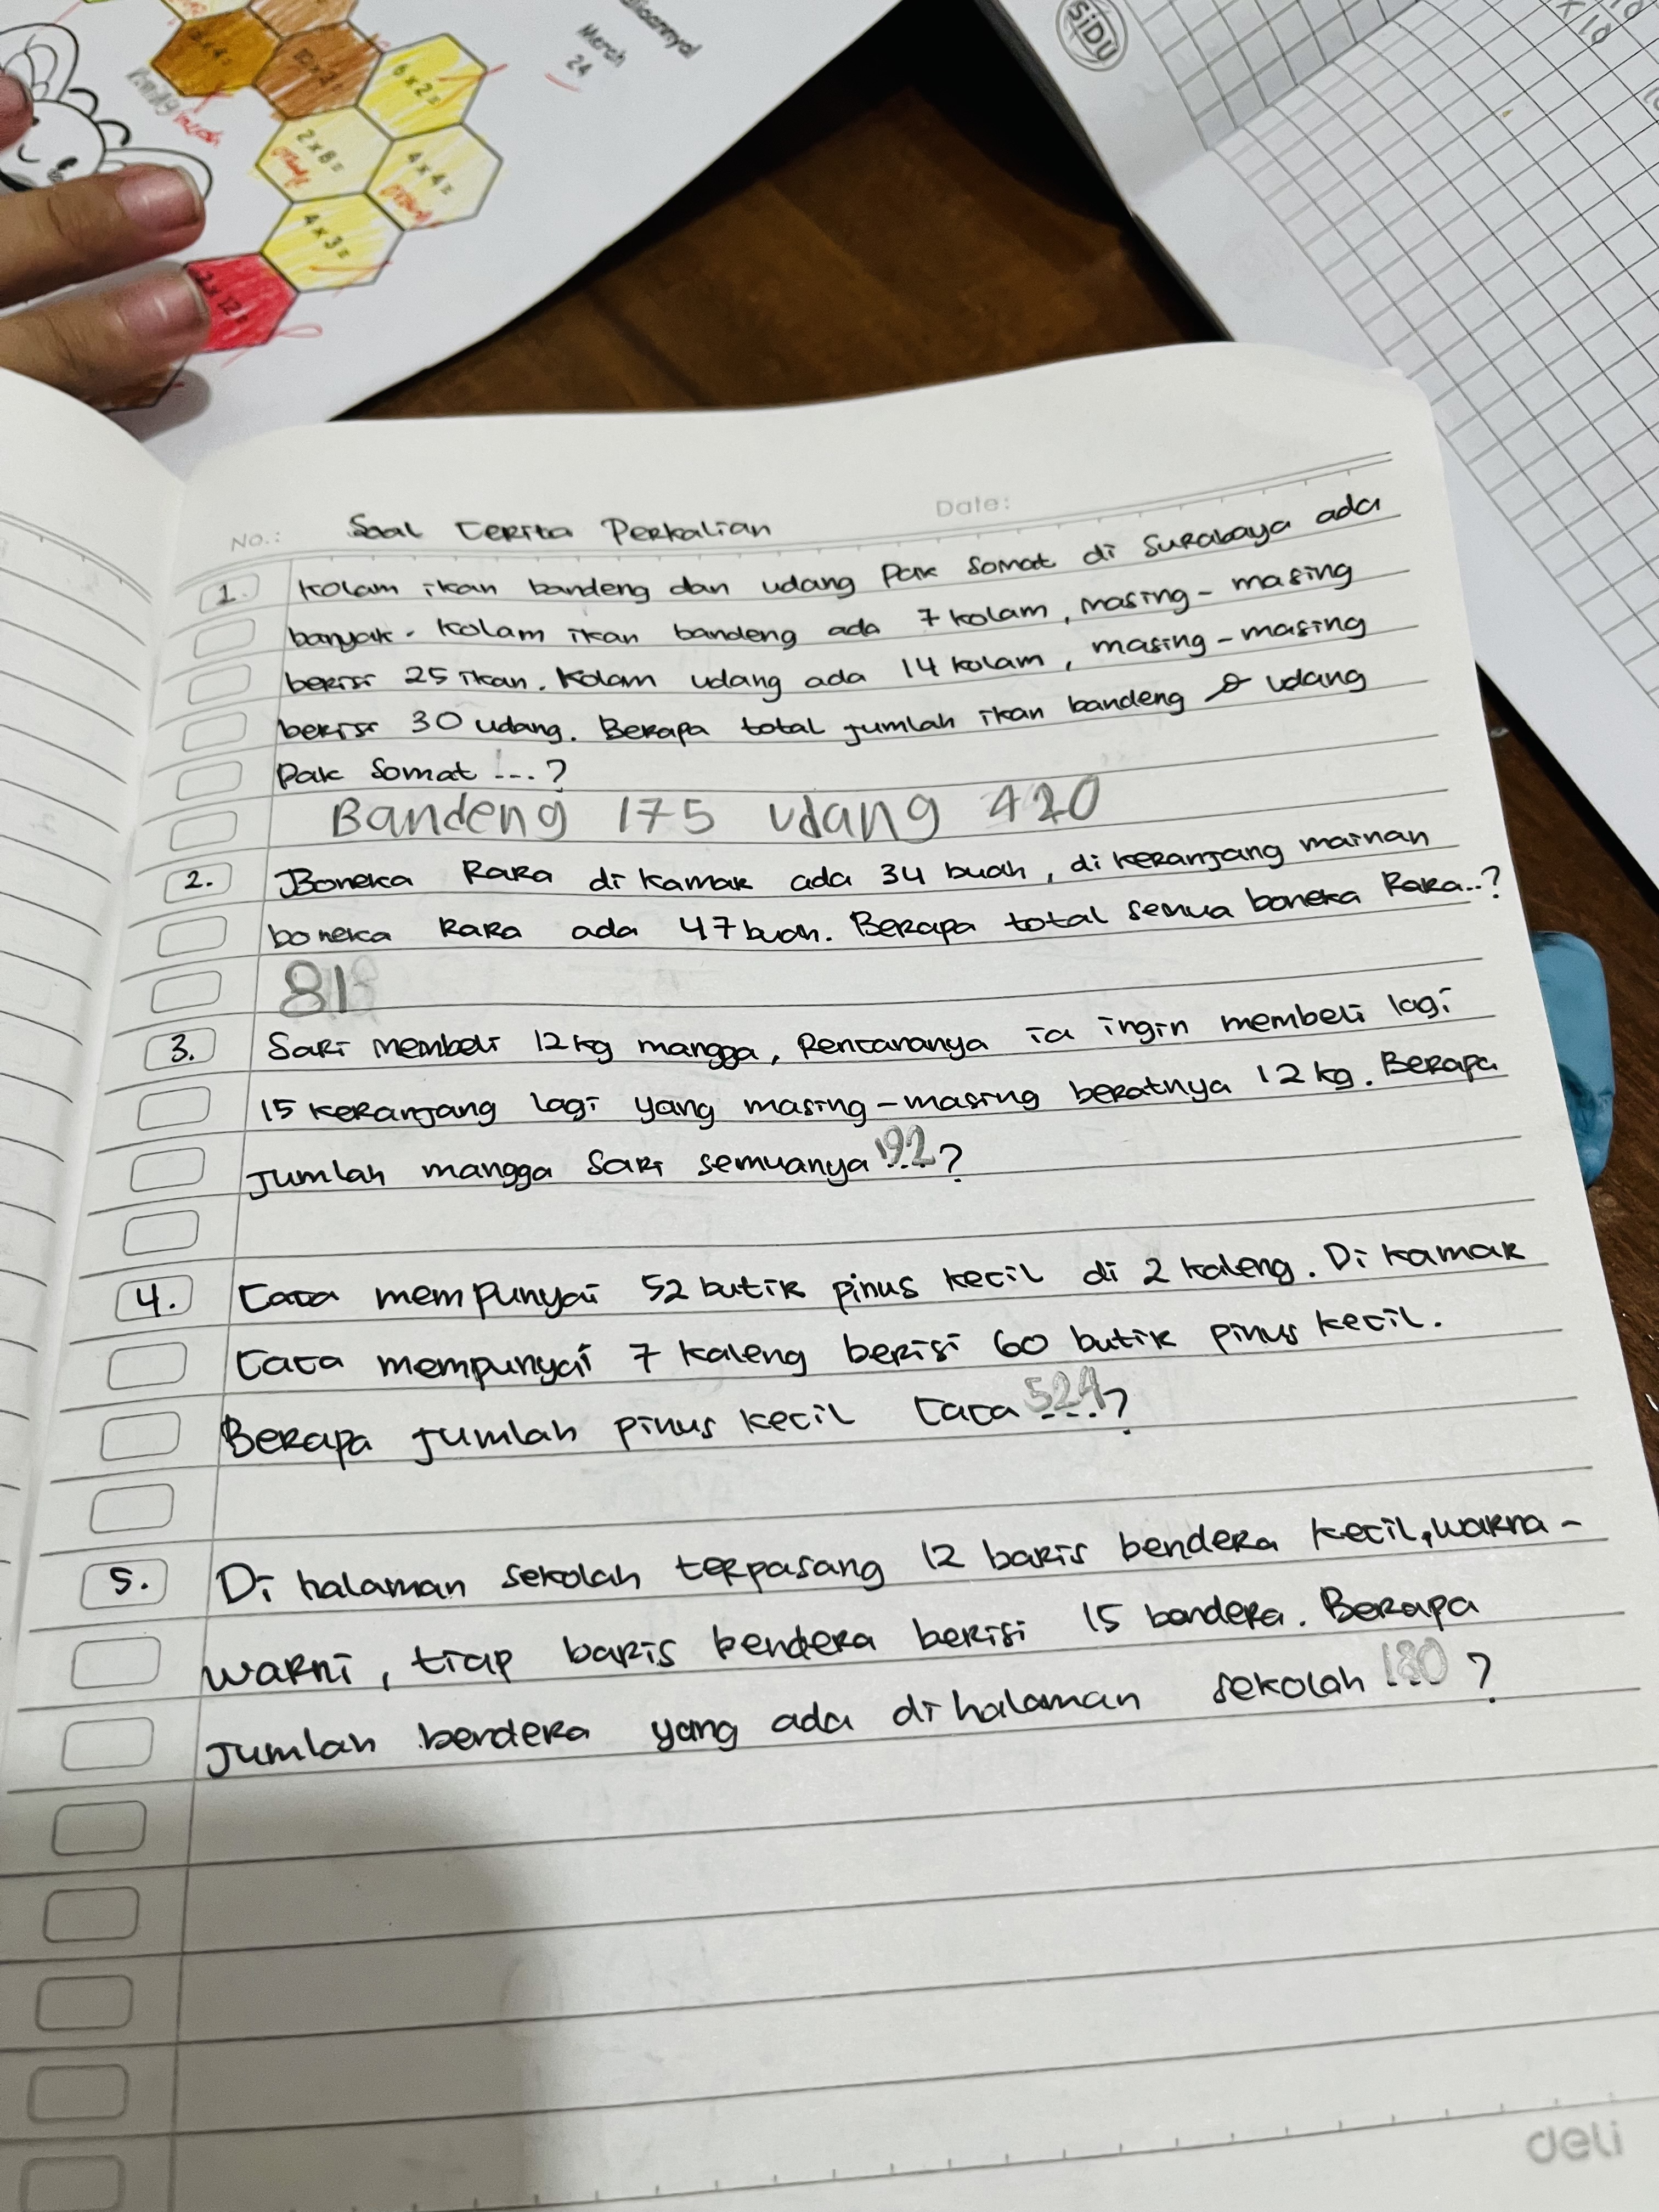 March
24
6 x 2 =
2 x 8 =
4 x 4 =
4 x 3 =
SiDU
No.:
Date:
Soal Cerita Perkalian
1. Kolam ikan bandeng dan udang Pak Somat di Surabaya ada
banyak. Kolam ikan bandeng ada 7 kolam, masing-masing
berisi 25 ikan. Kolam udang ada 14 kolam, masing-masing
berisi 30 udang. Berapa total jumlah ikan bandeng & udang
Pak Somat ...?
Bandeng 175 udang 420
2. Boneka Rara di kamar ada 34 buah, di keranjang mainan
boneka Rara ada 47 buah. Berapa total semua boneka Rara..?
81
3. Sari membeli 12 kg mangga, Rencananya ia ingin membeli lagi
15 keranjang lagi yang masing-masing beratnya 12 kg. Berapa
Jumlah mangga Sari semuanya 192...?
4. Caca mempunyai 52 butir pinus kecil di 2 kaleng. Di kamar
Caca mempunyai 7 kaleng berisi 60 butir pinus kecil.
Berapa jumlah pinus kecil Caca 524...?
5. Di halaman sekolah terpasang 12 baris bendera kecil, warna-
warni, tiap baris bendera berisi 15 bendera. Berapa
Jumlah bendera yang ada di halaman sekolah 180...?
deli